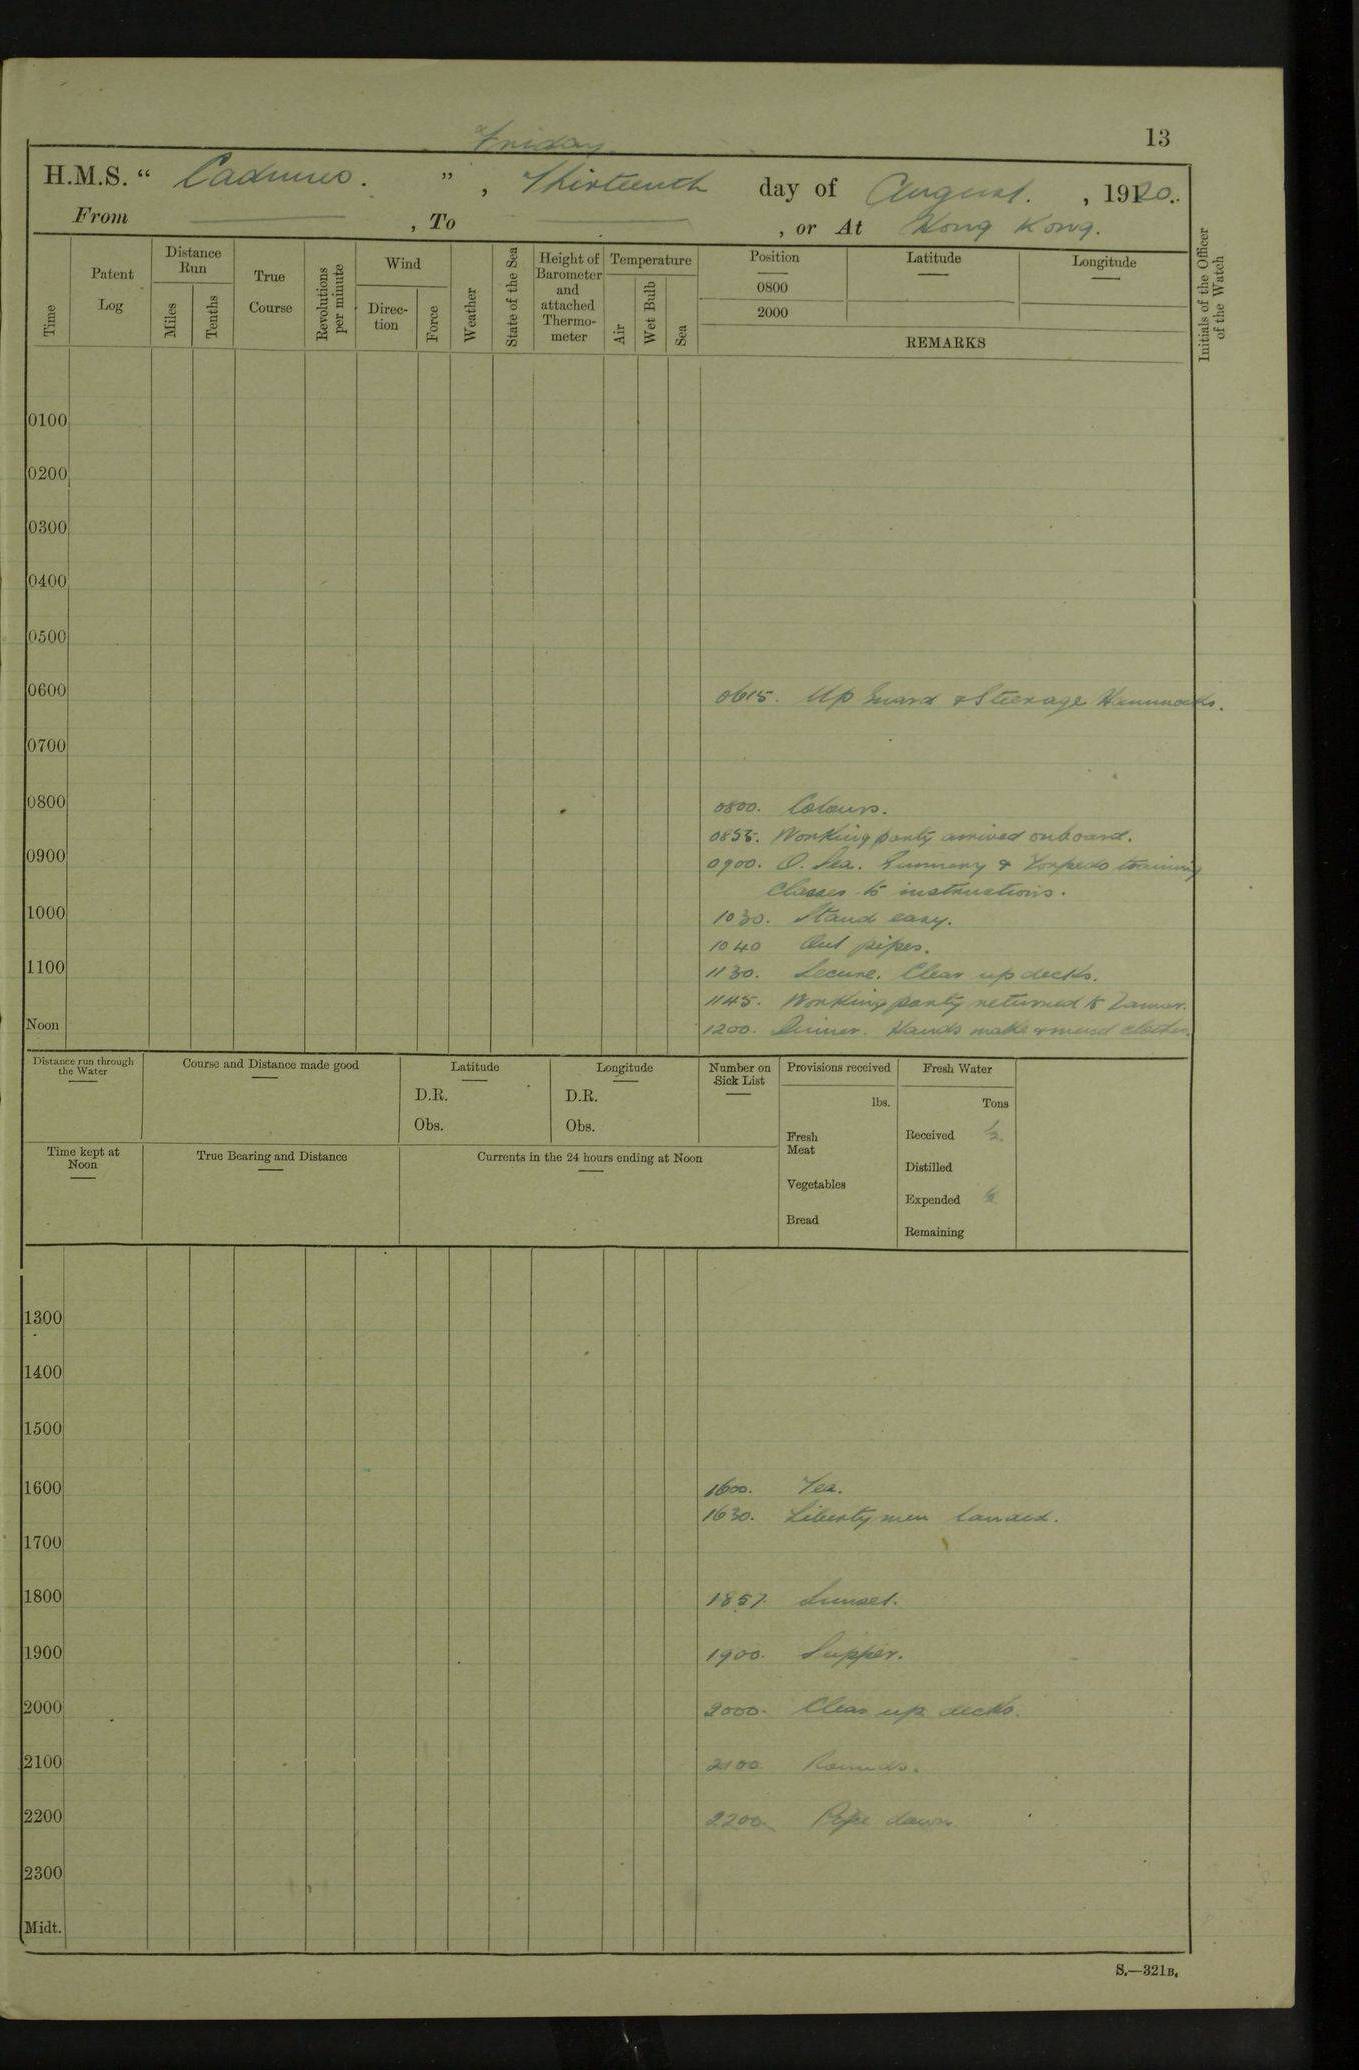 13
Friday
H.M.S. “ Cadmus. ” , Thirteenth day of August. , 1920.
From ——— , To ——— , or At Hong Kong.
Time
Patent Log
Distance Run
Miles
Tenths
True Course
Revolutions per minute
Wind
Direc-tion
Force
Weather
State of the Sea
Height of Barometer and attached Thermo-meter
Temperature
Air
Wet Bulb
Sea
Position
Latitude
Longitude
0800
2000
REMARKS
Initials of the Officer of the Watch
0100
0200
0300
0400
0500
0600
0615. Up Guard & Steerage Hammocks.
0700
0800
0800. Colours.
0855. Working party arrived onboard.
0900
0900. O. Sea. Gunnery & Torpedo training
classes to instructions.
1000
1030. Stand easy.
1040 Out pipes.
1100
1130. Secure. Clear up decks.
1145. Working party returned to Tamar.
Noon
1200. Dinner. Hands make & mend clothes.
Distance run through the Water
Course and Distance made good
Latitude
D.R.
Obs.
Longitude
D.R.
Obs.
Number on Sick List
Provisions received
lbs.
Fresh Meat
Vegetables
Bread
Fresh Water
Tons
Received ½
Distilled
Expended
Remaining
Time kept at Noon
True Bearing and Distance
Currents in the 24 hours ending at Noon
1300
1400
1500
1600
1600. Tea.
1630. Liberty men landed.
1700
1800
1857. Sunset.
1900
1900. Supper.
2000
2000. Clear up decks.
2100
2100. Rounds.
2200
2200. Pipe down
2300
Midt.
S.—321B.